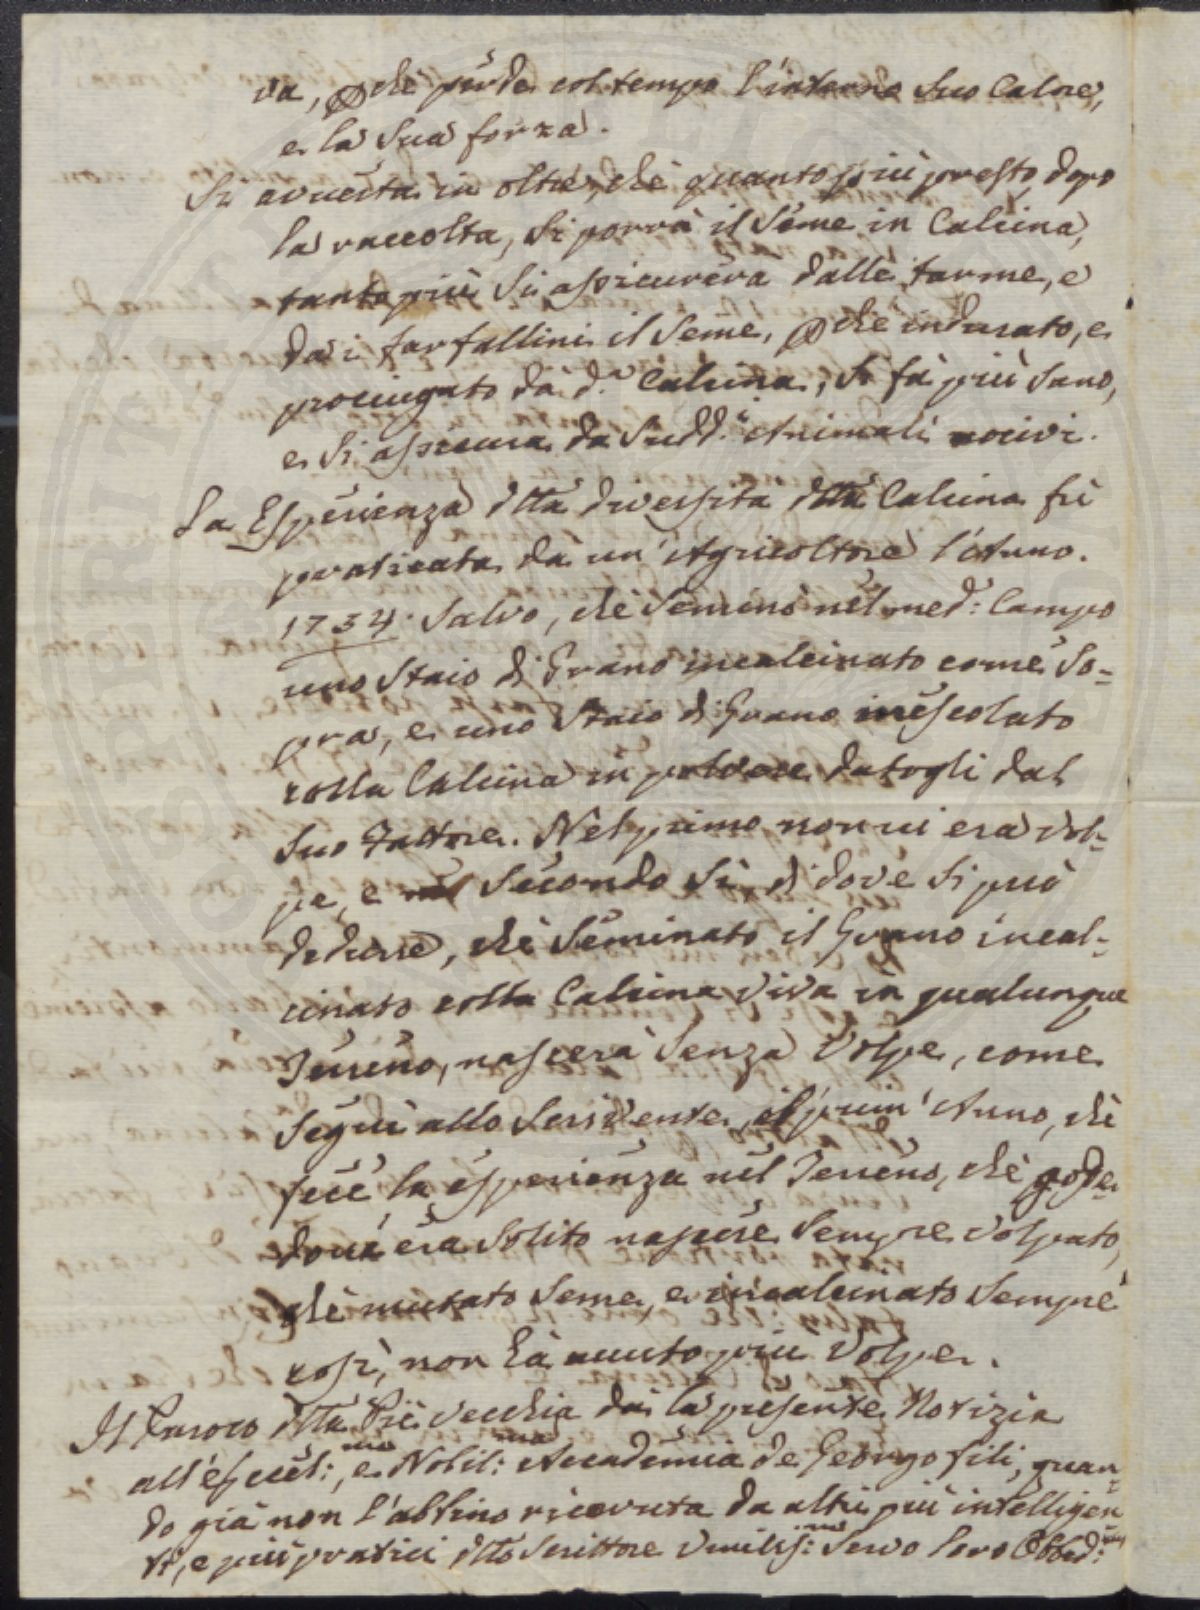 va, p chè perde col tempo l'interno suo Calore,
e la sua forza.
Si avverta in oltre, chè quanto più presto, dopo
la raccolta, si porrà il seme in Calcina,
tanto più si assicurerà dalle tarme, e
dai farfallini il seme, p chè indurato, e
prociugato dà d.a Calcina, si fà più sano,
e si assicura da sudd.i Animali nocivi.
La Esperienza dlla diversità dlla Calcina fù
praticata dà un' Agricoltore l'Anno.
1734. salvo, chè seminò nel med.: Campo
uno staio di Grano incalcinato comè so=
pra, e uno staio di Grano mescolato
colla Calcina in polvere datogli dal
suo Fattore. Nel primo non vi era vol=
pe, e nel secondo sì, di dove si può
dedurre, chè seminato il Grano incal=
cinato colla Calcina viva in qualunque
Terreno, nascerà senza Volpe, come
seguì allo scrivente, il prim' Anno, chè
fece la esperienza nel Terreno, chè gode,
dovè era solito nascere sempre volpato,
chè mutato seme, e incalcinato sempre
così, non hà avuto più Volpe.
Il Paroco dlla Piè vecchia dà la presente Notizia
all'Eccel:ma, e Nobil:ma Accademia de Georgofili, quan=
do già non l'abbino ricevuta da altri più intelligen
ti, e più pratici dllo scrittore Umiliss:mo Servo loro Obbed:mo